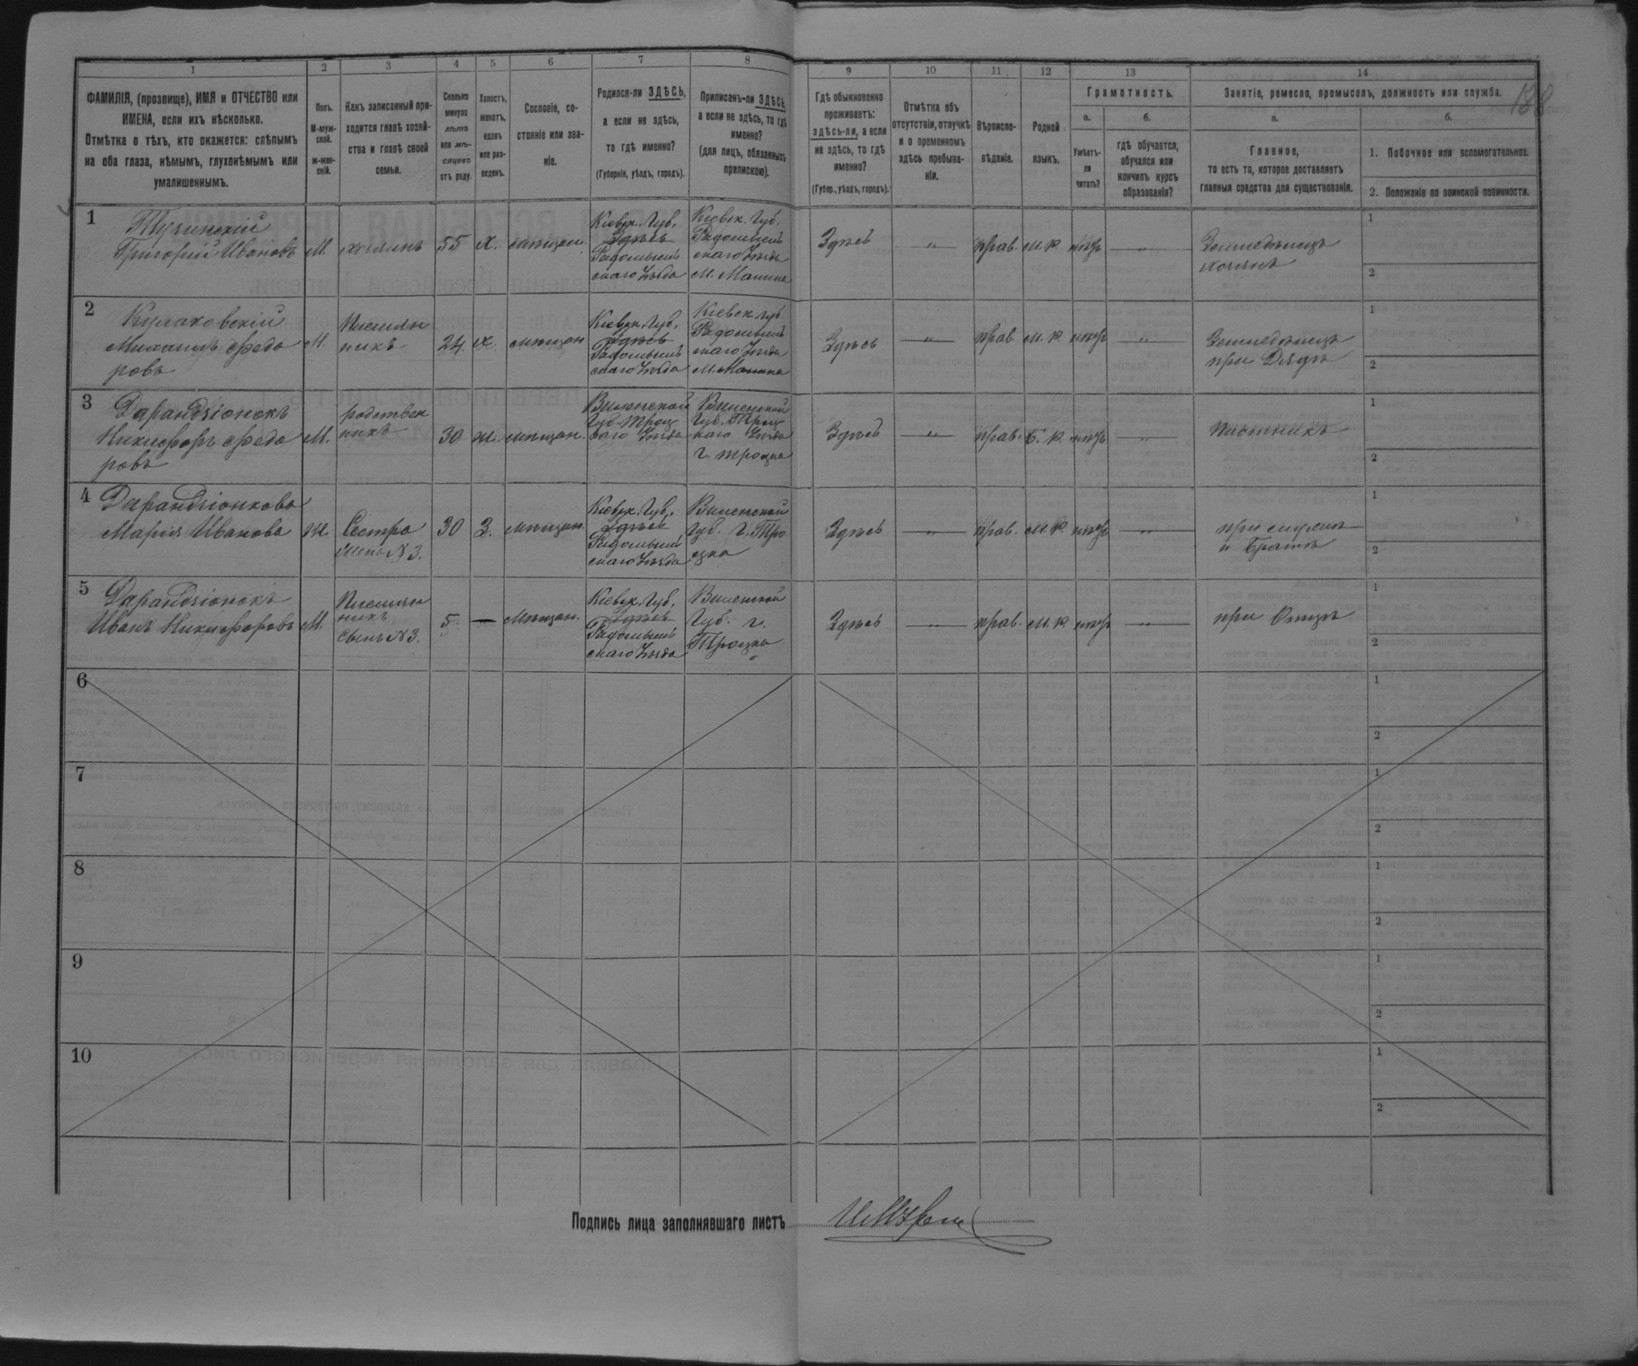 1
2
3
4
5
6
7
8
9
10
11
12
13
14
ФАМИЛІЯ, (прозвище), ИМЯ и ОТЧЕСТВО или
ИМЕНА, если ихъ нѣсколько.
Отмѣтка о тѣхъ, кто окажется: слѣпымъ
на оба глаза, нѣмымъ, глухонѣмымъ или
умалишеннымъ.
Полъ.
М-муж-
ской.
ж-жен-
скій.
Какъ записанный при-
ходится главѣ хозяй-
ства и главѣ своей
семьи.
Сколько
минуло
лѣтъ
или мѣ-
сяцевъ
отъ роду.
Холостъ,
женатъ,
вдовъ
или раз-
веденъ.
Сословіе, со-
стояніе или зва-
ніе.
Родился-ли ЗДѢСЬ,
а если не здѣсь,
то гдѣ именно?
(Губернія, уѣздъ, городъ).
Приписанъ-ли ЗДѢСЬ,
а если не здѣсь, то гдѣ
именно?
(для лицъ, обязанныхъ
припискою).
Гдѣ обыкновенно
проживаетъ:
здѣсь-ли, а если
не здѣсь, то гдѣ
именно?
(Губер., уѣздъ, городъ).
Отмѣтка объ
отсутствіи, отлучкѣ
и о временномъ
здѣсь пребыва-
ніи.
Вѣроиспо-
вѣданіе.
Родной
языкъ.
Грамотность.
а.
Умѣетъ-
ли
читать?
б.
гдѣ обучается,
обучался или
кончилъ курсъ
образованія?
Занятіе, ремесло, промыселъ, должность или служба.
а.
Главное,
то есть то, которое доставляетъ
главныя средства для существованія.
б.
1. Побочное или вспомогательное.
2. Положеніе по воинской повинности.
138
1
Тучинскій
Григорій Ивановъ
М.
хозяинъ
55
х.
мѣщан.
Кіевск. Губ.
здѣсь
Радомысль
скаго Уѣзда
Кіевск. Губ.
Радомысль
скаго Уѣзда
м. Малина
Здѣсь
"
прав.
м. р.
нѣтъ
"
Земледѣлецъ
хозяинъ
1
2
2
Кулаковскій
Михаилъ Ѳедо
ровъ
М
Племян
никъ
24.
х.
мѣщан
Кіевск. Губ.
здѣсь
Радомысль
скаго Уѣзда
Кіевск. Губ.
Радомысль
скаго Уѣзда
м. Малина
Здѣсь
"
прав
м. р.
нѣтъ
"
Земледѣлецъ
при Дядѣ
1
2
3
Дарандзіонокъ
Никифоръ Ѳедо
ровъ
М.
родствен
никъ
30
ж.
мѣщан.
Виленской
Губ. Троц
каго Уѣзда
Виленской
Губ. Троц
каго Уѣзда
г. Троцка
Здѣсь
"
прав.
б. р.
нѣтъ
"
плотникъ
1
2
4
Дарандзіонкова
Марія Иванова
ж.
Сестра
жена №3.
30
З.
мѣщан.
Кіевск. Губ.
здѣсь
Радомысль
скаго Уѣзда
Виленской
Губ. г. Тро
цка
Здѣсь
"
прав.
м. р
нѣтъ
"
при мужѣ
и Братѣ
1
2
5
Дарандзіонокъ
Иванъ Никифоровъ
М.
Племян
никъ
сынъ №3.
5
—
мѣщан.
Кіевск. Губ.
здѣсь
Радомысль
скаго Уѣзда
Виленской
Губ. г.
Троцка
Здѣсь
"
прав.
м. р.
нѣтъ
"
при Отцѣ
1
2
6
1
2
7
1
2
8
1
2
9
1
2
10
1
2
Подпись лица заполнявшаго листъ